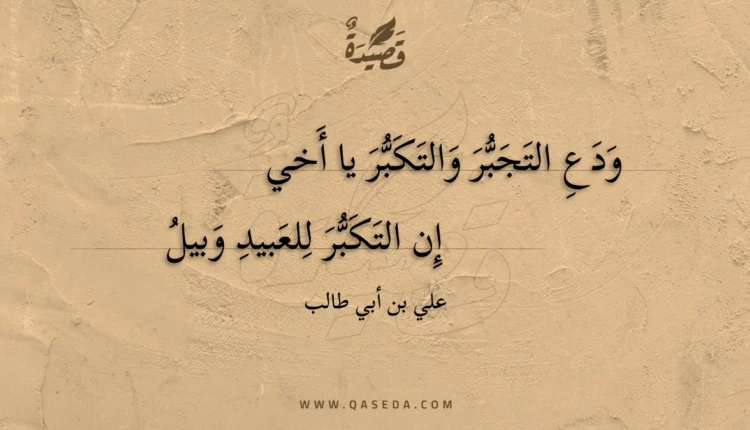 قَصِيْدَةٌ
وَدَعِ التَجَبُّرَ وَالتَكَبُّرَ يا أَخي
إِن التَكَبُّرَ لِلعَبيدِ وَبيلُ
علي بن أبي طالب
WWW.QASEDA.COM